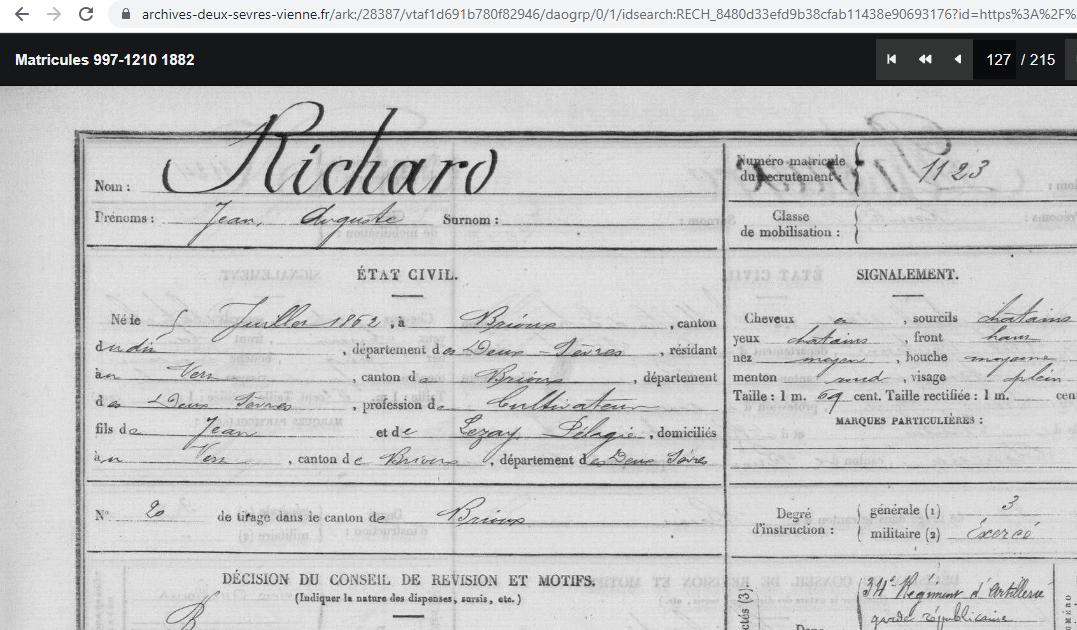 archives-deux-sevres-vienne.fr/ark:/28387/vtaf1d691b780f82946/daogrp/0/1/idsearch:RECH_8480d33efd9b38cfab11438e90693176?id=https%3A%2F%
Matricules 997-1210 1882
127 / 215
Richard
Nom :
Prénoms : Jean, Auguste Surnom :
Numéro matricule du recrutement : 1123
Classe de mobilisation :
ÉTAT CIVIL.
Né le 5 Juillet 1862, à Brioux, canton
du dit, département des Deux-Sèvres, résidant
à Vern, canton de Brioux, département
des Deux Sèvres, profession de Cultivateur
fils de Jean et de Lezay Pélagie, domiciliés
à Vern, canton de Brioux, département des Deux Sèvres
SIGNALEMENT.
Cheveux et, sourcils chatains
yeux chatains, front haut
nez moyen, bouche moyenne
menton rond, visage plein
Taille : 1 m. 69 cent. Taille rectifiée : 1 m. cen
MARQUES PARTICULIÈRES :
N° 20 de tirage dans le canton de Brioux
Degré d'instruction : générale (1) 3
militaire (2) Exercé
DÉCISION DU CONSEIL DE REVISION ET MOTIFS.
(Indiquer la nature des dispenses, sursis, etc.)
34e Régiment d'Artillerie
garde républicaine
Dans
ctés (3).
NUMÉRO